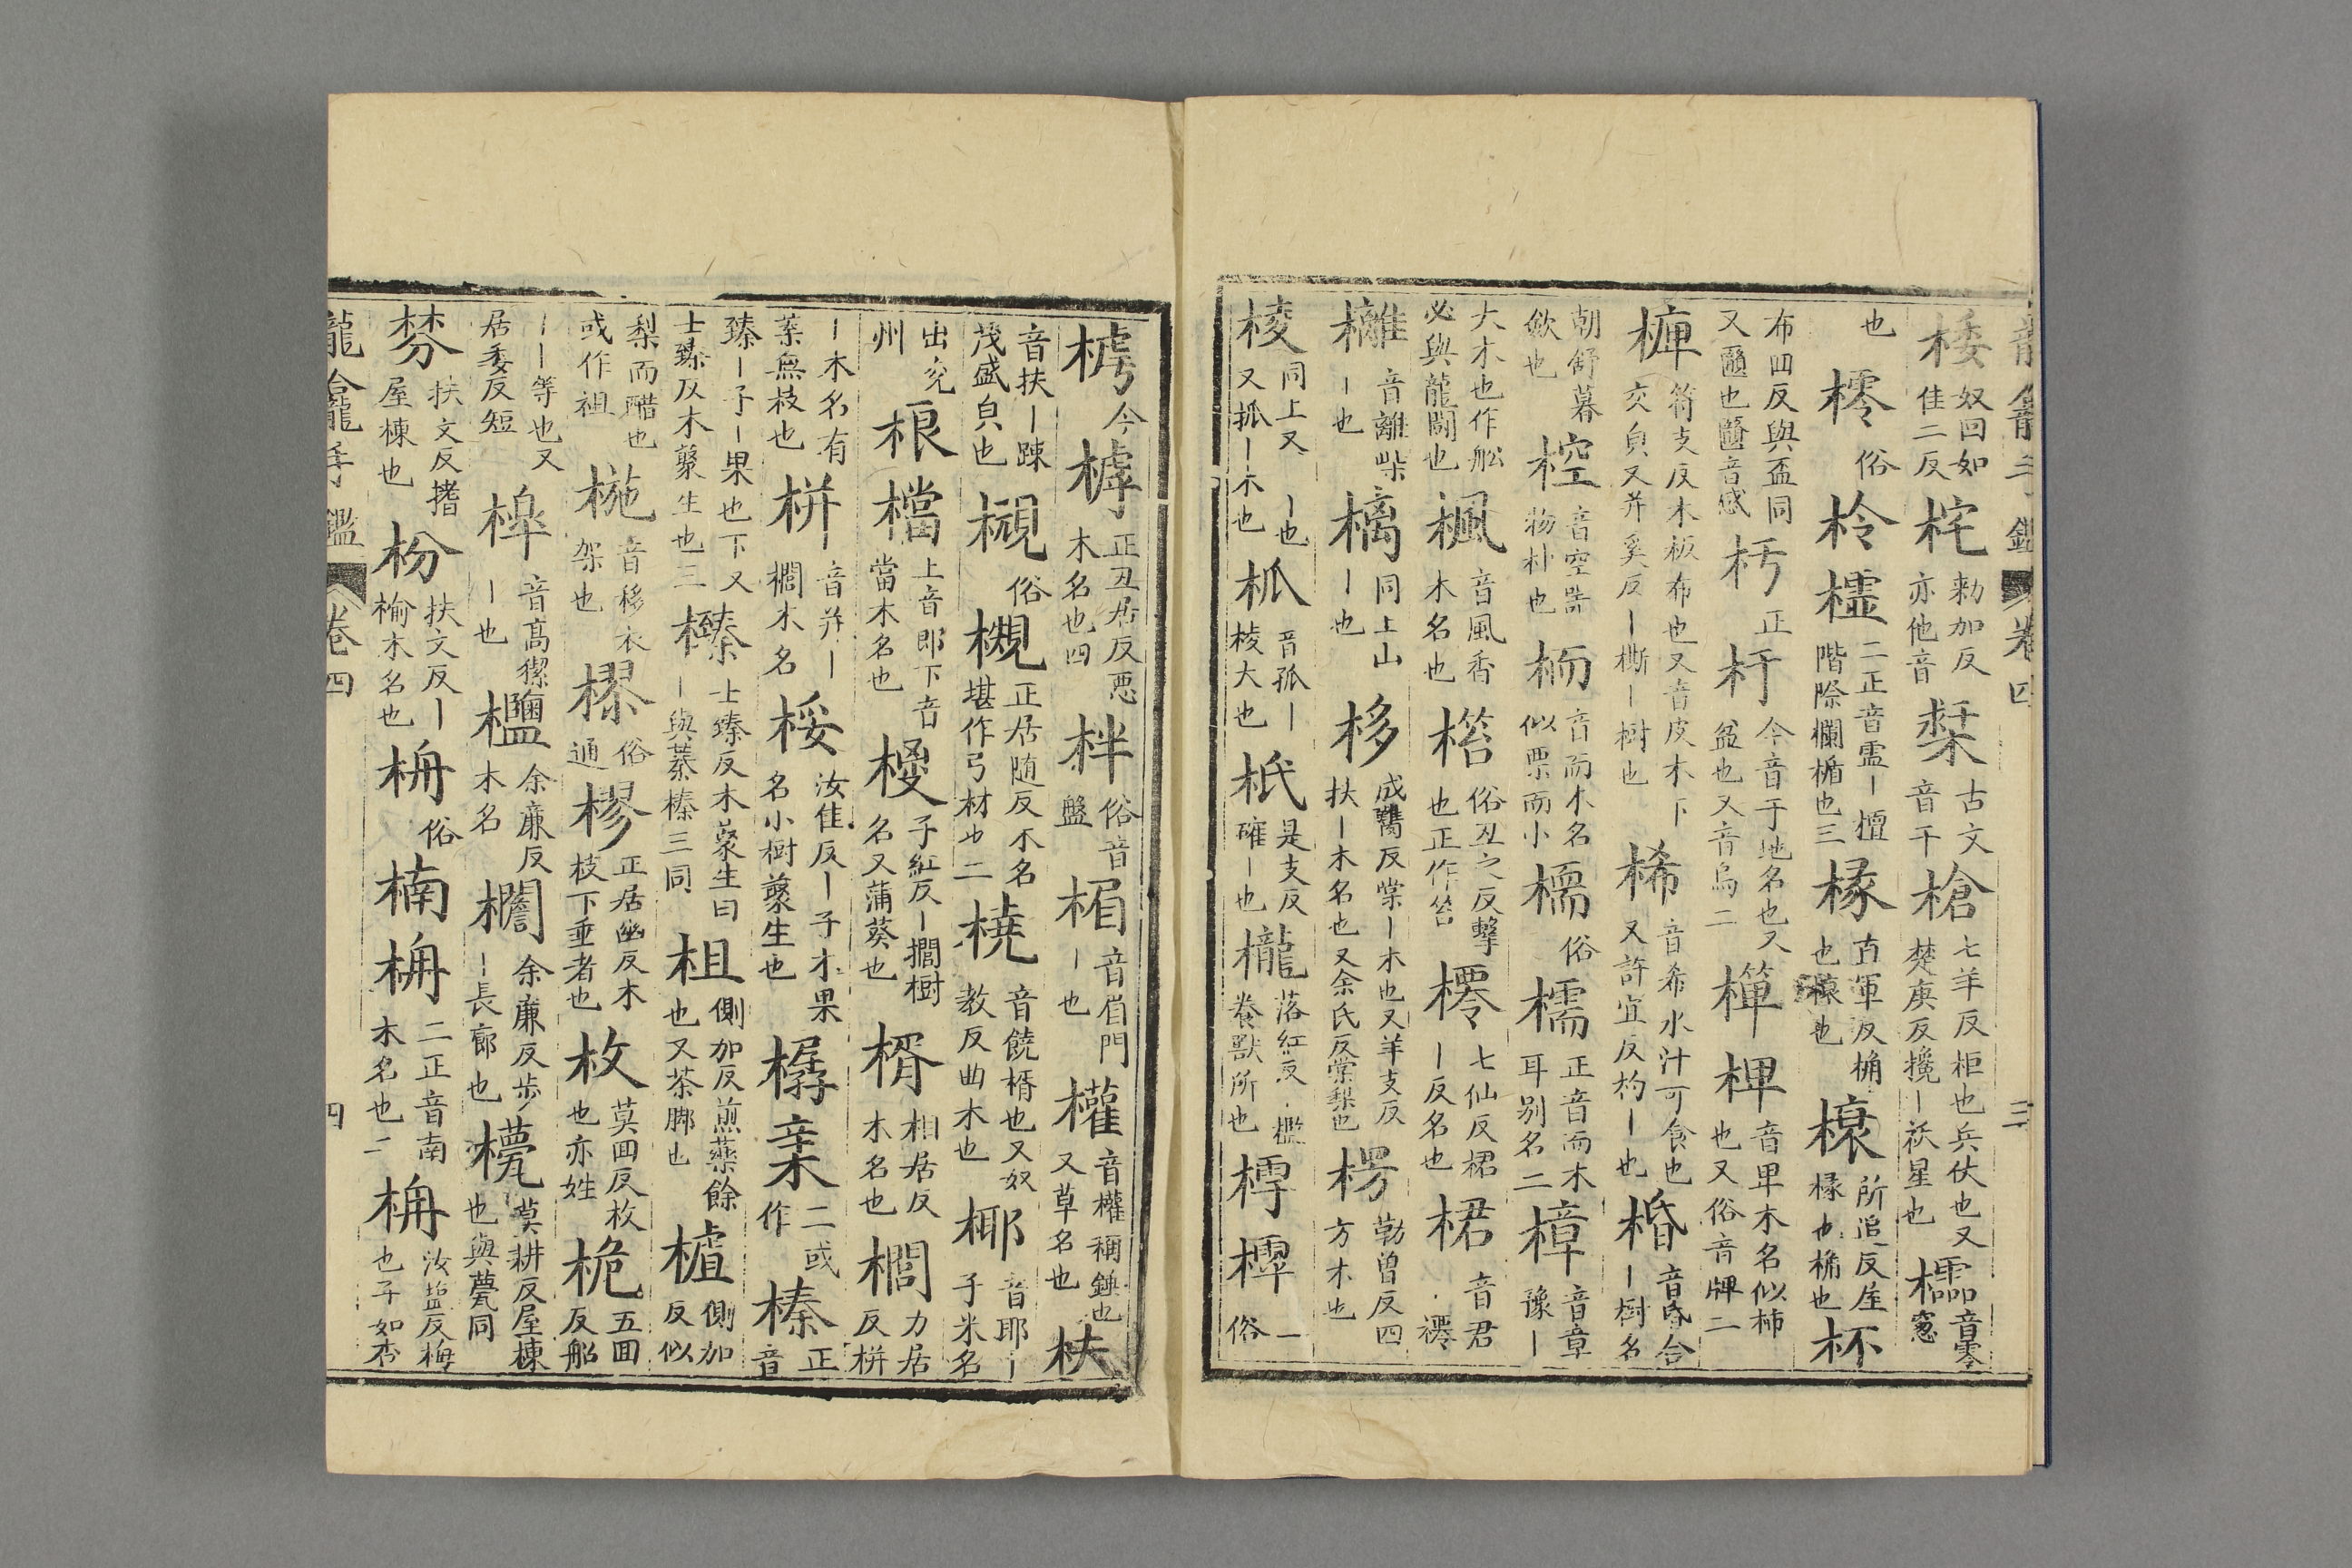 桵奴回如佳二反㭐勑加反亦他音㮆古文音干槍七羊反柜也兵仗也又楚庚反攙丨祅星也櫺音零窓
也樗俗柃櫺二正音霊丨檀階除欄楯也三椽直軍反桷也榱也榱所追反屋椽也桷也杯
布回反與盃同又匾也匾音感杇正杅今音于地名也又盆也又音烏二樿椑音卑木名似柿也又俗音牌二
㯅符支反木板布也又音皮木下交皃又并奚反丨㯕丨樹也桸音希水汁可食也又許宜反杓丨也㮯音昏合丨樹名
朝舒暮歛也椌音空器物朴也栭音而木名似栗而小檽俗檽正音而木耳別名二樟音章豫丨
大木也作舩必與龍闘也楓音風香木名也㯚俗丑之反擊也正作笞櫏七仙反桾丨反名也桾音君櫏
樆音離柴丨也樆同上山丨也栘成觿反棠丨木也又羊支反扶丨木名也又余氏反棠梨也楞勒曾反四方木也
棱同上又丨也又抓丨木也柧音孤丨棱大也衹是支反確丨也櫳落紅反檻養獸所也樗樗俗一
樗今樗正丑居反悪木名也四柈俗音盤楣音眉門丨也權音權稱錘也又草名也扶
音扶丨踈茂盛皃也槻俗槻正居随反木名堪作弓材也二橈音饒楫也又奴教反曲木也椰音耶丨子米名
出兖州桹檔上音郎下音當木名也椶子紅反丨櫚樹名又蒲葵也楈相居反木名也櫚力居反栟
丨木名有葉無枝也栟音并丨櫚木名桵汝隹反丨子木果名小樹藂生也樼亲二或作榛正音
臻丨子丨果也下又士臻反木藂生也三榛士臻反木藂生曰丨與蓁榛三同柤側加反煎藥餘也又茶脚也樝側加反似
梨而醋也或作柤椸音移衣架也樛俗通樛正居幽反木枝下垂者也枚莫回反枚也亦姓桅五回反船
丨丨等也又居委反短槹音髙㯷丨也櫩余廉反木名櫩余廉反步丨長廊也甍莫耕反屋棟也與甍同
棼扶文反撍屋棟也枌扶文反丨榆木名也枏俗楠枏二正音南木名也二枏汝塩反梅也子如杏
龍龕手鑑卷四四